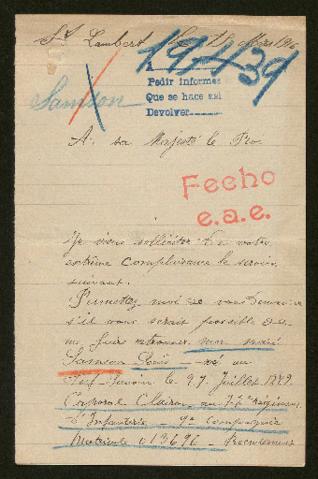 St Lambert Mars 1916
19439
Pedir informes
Que se hace así
Devolver
Samson
A. sa Majesté le Roi
Fecho
e.a.e.
Je viens solliciter de votre
extrême complaisance le service
suivant.
Permettez moi de vous demander
s'il vous serait possible de
me faire retrouver mon mari
Samson Louis né au
le 27 Juillet 1879
Caporal Clairon au 77e Régiment
d'Infanterie 9e Compagnie
Matricule 013696 Recrutement